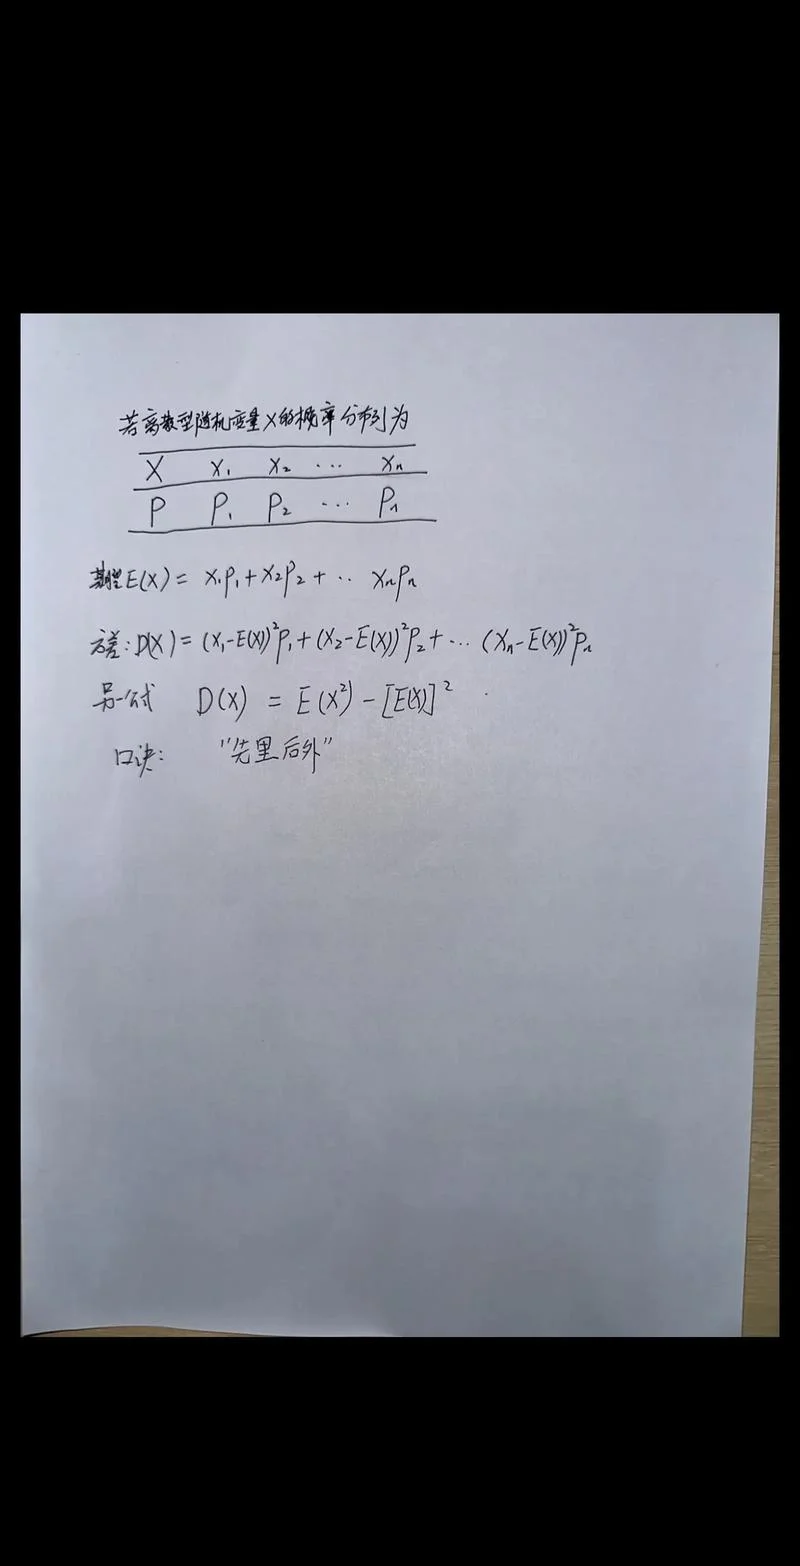 若离散型随机变量X的概率分布列为
X x₁ x₂ … xₙ
P P₁ P₂ … Pₙ
期望E(X) = x₁p₁+x₂p₂+ ·· xₙpₙ
方差:D(X) = (x₁-E(X))²p₁+(x₂-E(X))²p₂+… (xₙ-E(X))²pₙ
另一公式 D(X) = E(X²)-[E(X)]²
口诀: "先里后外"